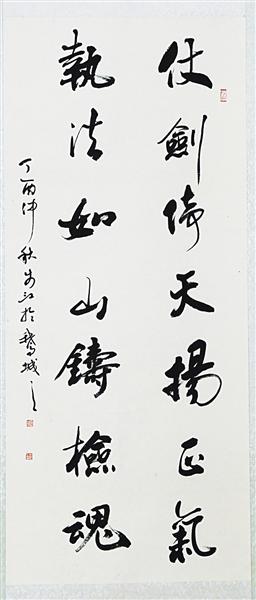 仗劍倚天揚正氣
執法如山鑄檢魂
丁酉仲秋步江於鵝城